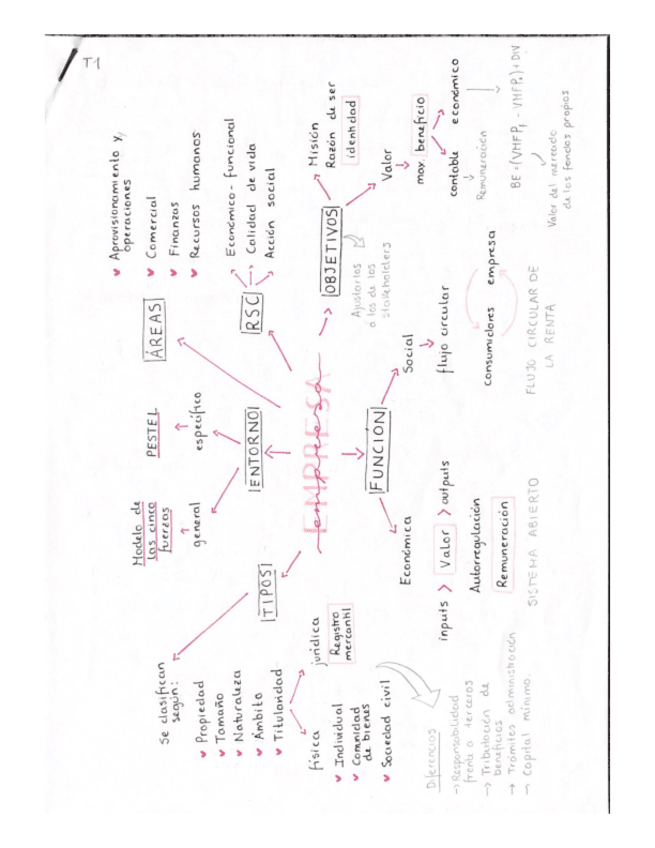 T-1
EMPRESA
empresa
TIPOS
Se clasifican
según:
Propiedad
Tamaño
Naturaleza
Ámbito
Titularidad
física
Individual
Comunidad
de bienes
Sociedad civil
jurídica
Registro
mercantil
Diferencias
→ Responsabilidad
frente a terceros
→ Tributación de
beneficios
→ Trámites administración
→ Capital mínimo.
ENTORNO
general
Modelo de
las cinco
fuerzas
específico
PESTEL
ÁREAS
Aprovisionamiento y
operaciones
Comercial
Finanzas
Recursos humanos
RSC
Económico-funcional
Calidad de vida
Acción social
OBJETIVOS
Ajustarlos
a los de los
stakeholders
Misión
Razón de ser
identidad
Valor
max. beneficio
contable
económico
Remuneración
BE=(VMFP₁ - VMFP₀)+DIV
Valor del mercado
de los fondos propios
FUNCIÓN
Económica
inputs > Valor > outputs
Autorregulación
Remuneración
SISTEMA ABIERTO
Social
flujo circular
consumidores empresa
FLUJO CIRCULAR DE
LA RENTA